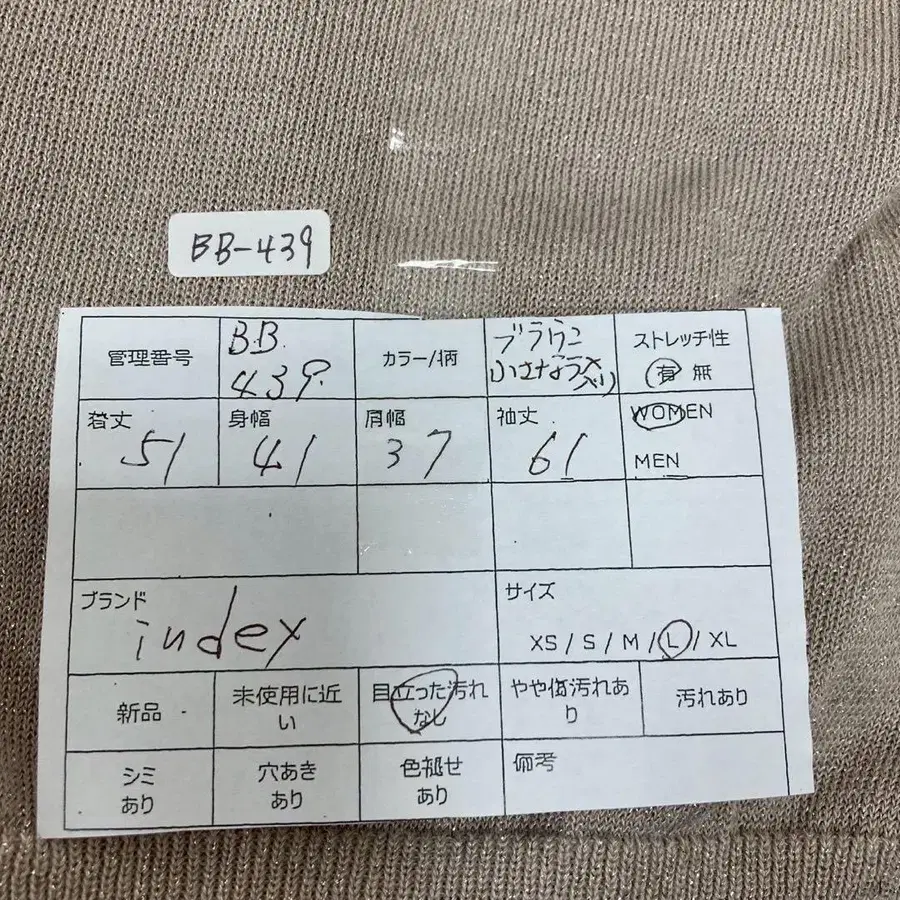 BB-439
管理番号
B.B.
439
カラー/柄
ブラウン
小さな
入り
ストレッチ性
有 無
着丈
51
身幅
41
肩幅
37
袖丈
61
WOMEN
MEN
ブランド
index
サイズ
XS / S / M / L / XL
新品
未使用に近
い
目立った汚れ
なし
やや傷汚れあ
り
汚れあり
シミ
あり
穴あき
あり
色褪せ
あり
備考